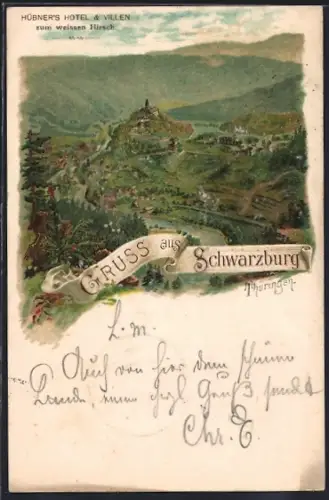 HÜBNER'S HOTEL & VILLEN
zum weissen Hirsch
GRUSS aus Schwarzburg
Thüringen
L. M.
Auch von hier dem schönen
Lande, einen hzgl. Gruß, sendet
Chr. E.